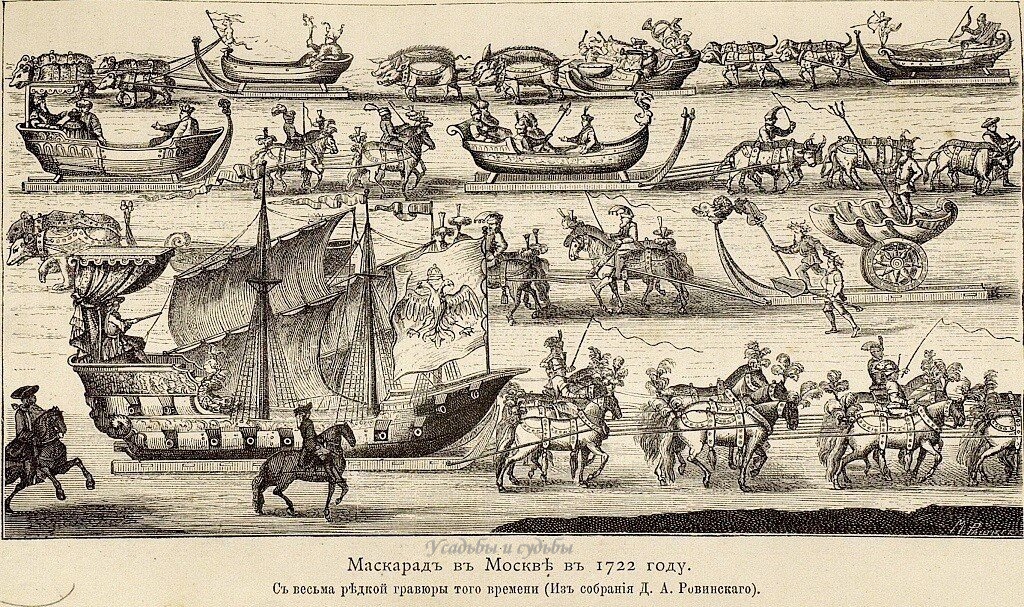 Усадьбы и судьбы
Маскарадъ въ Москвѣ въ 1722 году.
Съ весьма рѣдкой гравюры того времени (Изъ собранія Д. А. Ровинскаго).